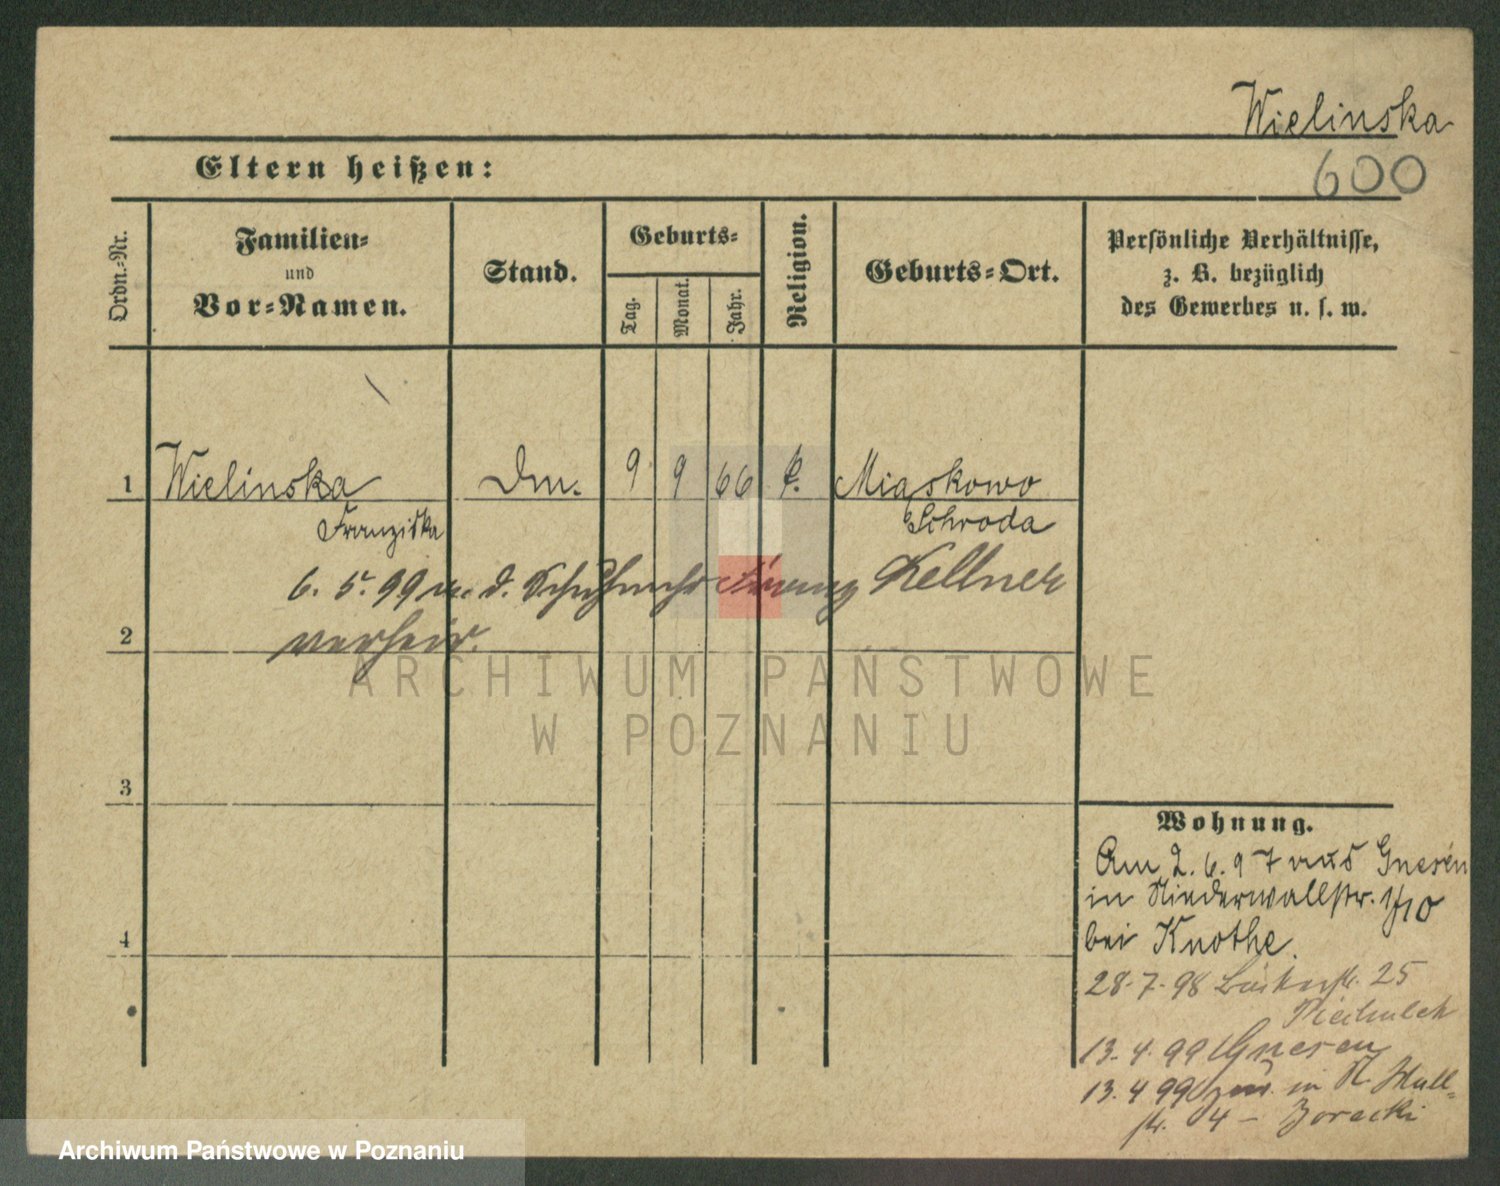 Wielinska
600
Eltern heißen:
Ordn.-Nr.
Familien-
und
Vor-Namen.
Stand.
Geburts-
Tag.
Monat.
Jahr.
Religion.
Geburts-Ort.
Persönliche Verhältnisse,
z. B. bezüglich
des Gewerbes u. s. w.
1 Wielinska Dm. 9 9 66 k. Miąskowo
Franziska Schroda
6. 5. 99 m. d. Schuhmchr Franz Kellner
2 verheir.
3
4
ARCHIWUM PAŃSTWOWE
W POZNANIU
Wohnung.
Am 2. 6. 97 aus Gnesen
in Niederwallstr. 1/10
bei Knothe.
28-7-98 Bäckerstr. 25
13-4-99 Gnesen
13. 4 99 zur. in N. Wall-
str. 4 - Zoracki
Archiwum Państwowe w Poznaniu